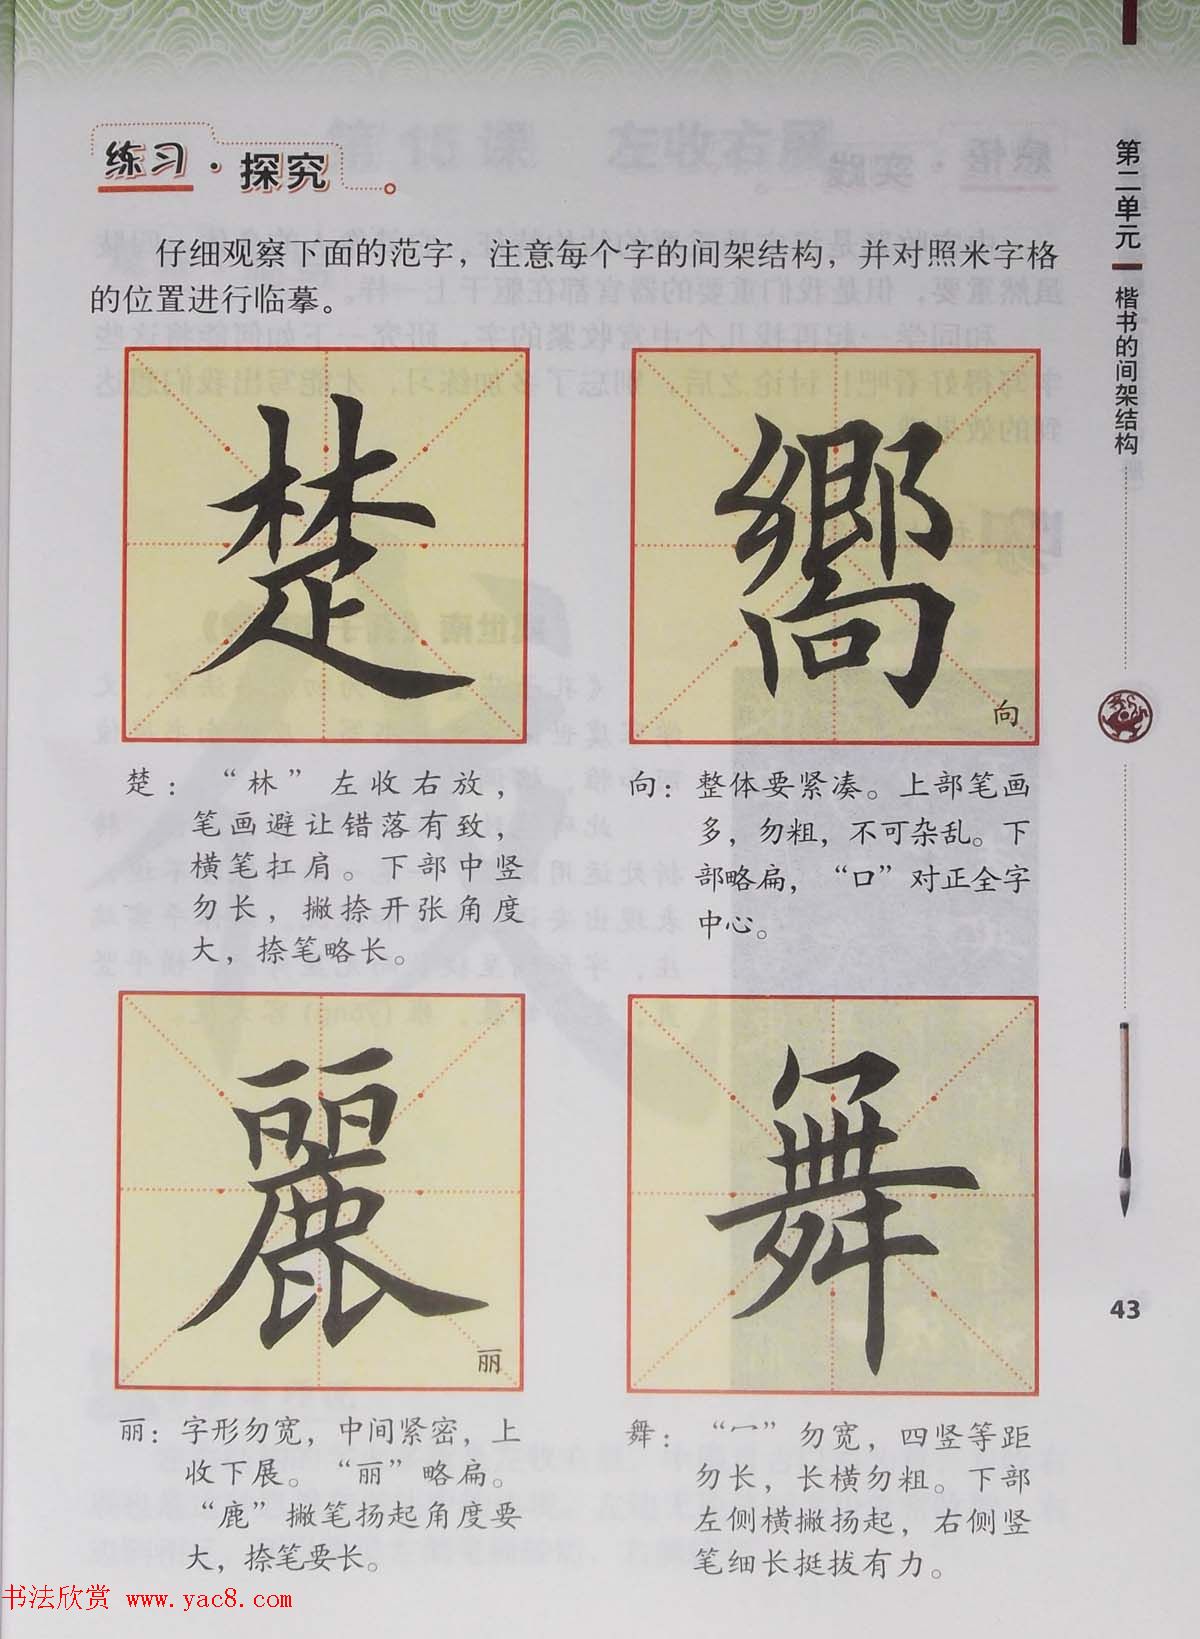 练习·探究
仔细观察下面的范字，注意每个字的间架结构，并对照米字格
的位置进行临摹。
楚
嚮
向
楚：“林”左收右放，
笔画避让错落有致，
横笔扛肩。下部中竖
勿长，撇捺开张角度
大，捺笔略长。
向：整体要紧凑。上部笔画
多，勿粗，不可杂乱。下
部略扁，“口”对正全字
中心。
麗
丽
舞
丽：字形勿宽，中间紧密，上
收下展。“丽”略扁。
“鹿”撇笔扬起角度要
大，捺笔要长。
舞：“冖”勿宽，四竖等距
勿长，长横勿粗。下部
左侧横撇扬起，右侧竖
笔细长挺拔有力。
第二单元
楷书的间架结构
43
书法欣赏 www.yac8.com